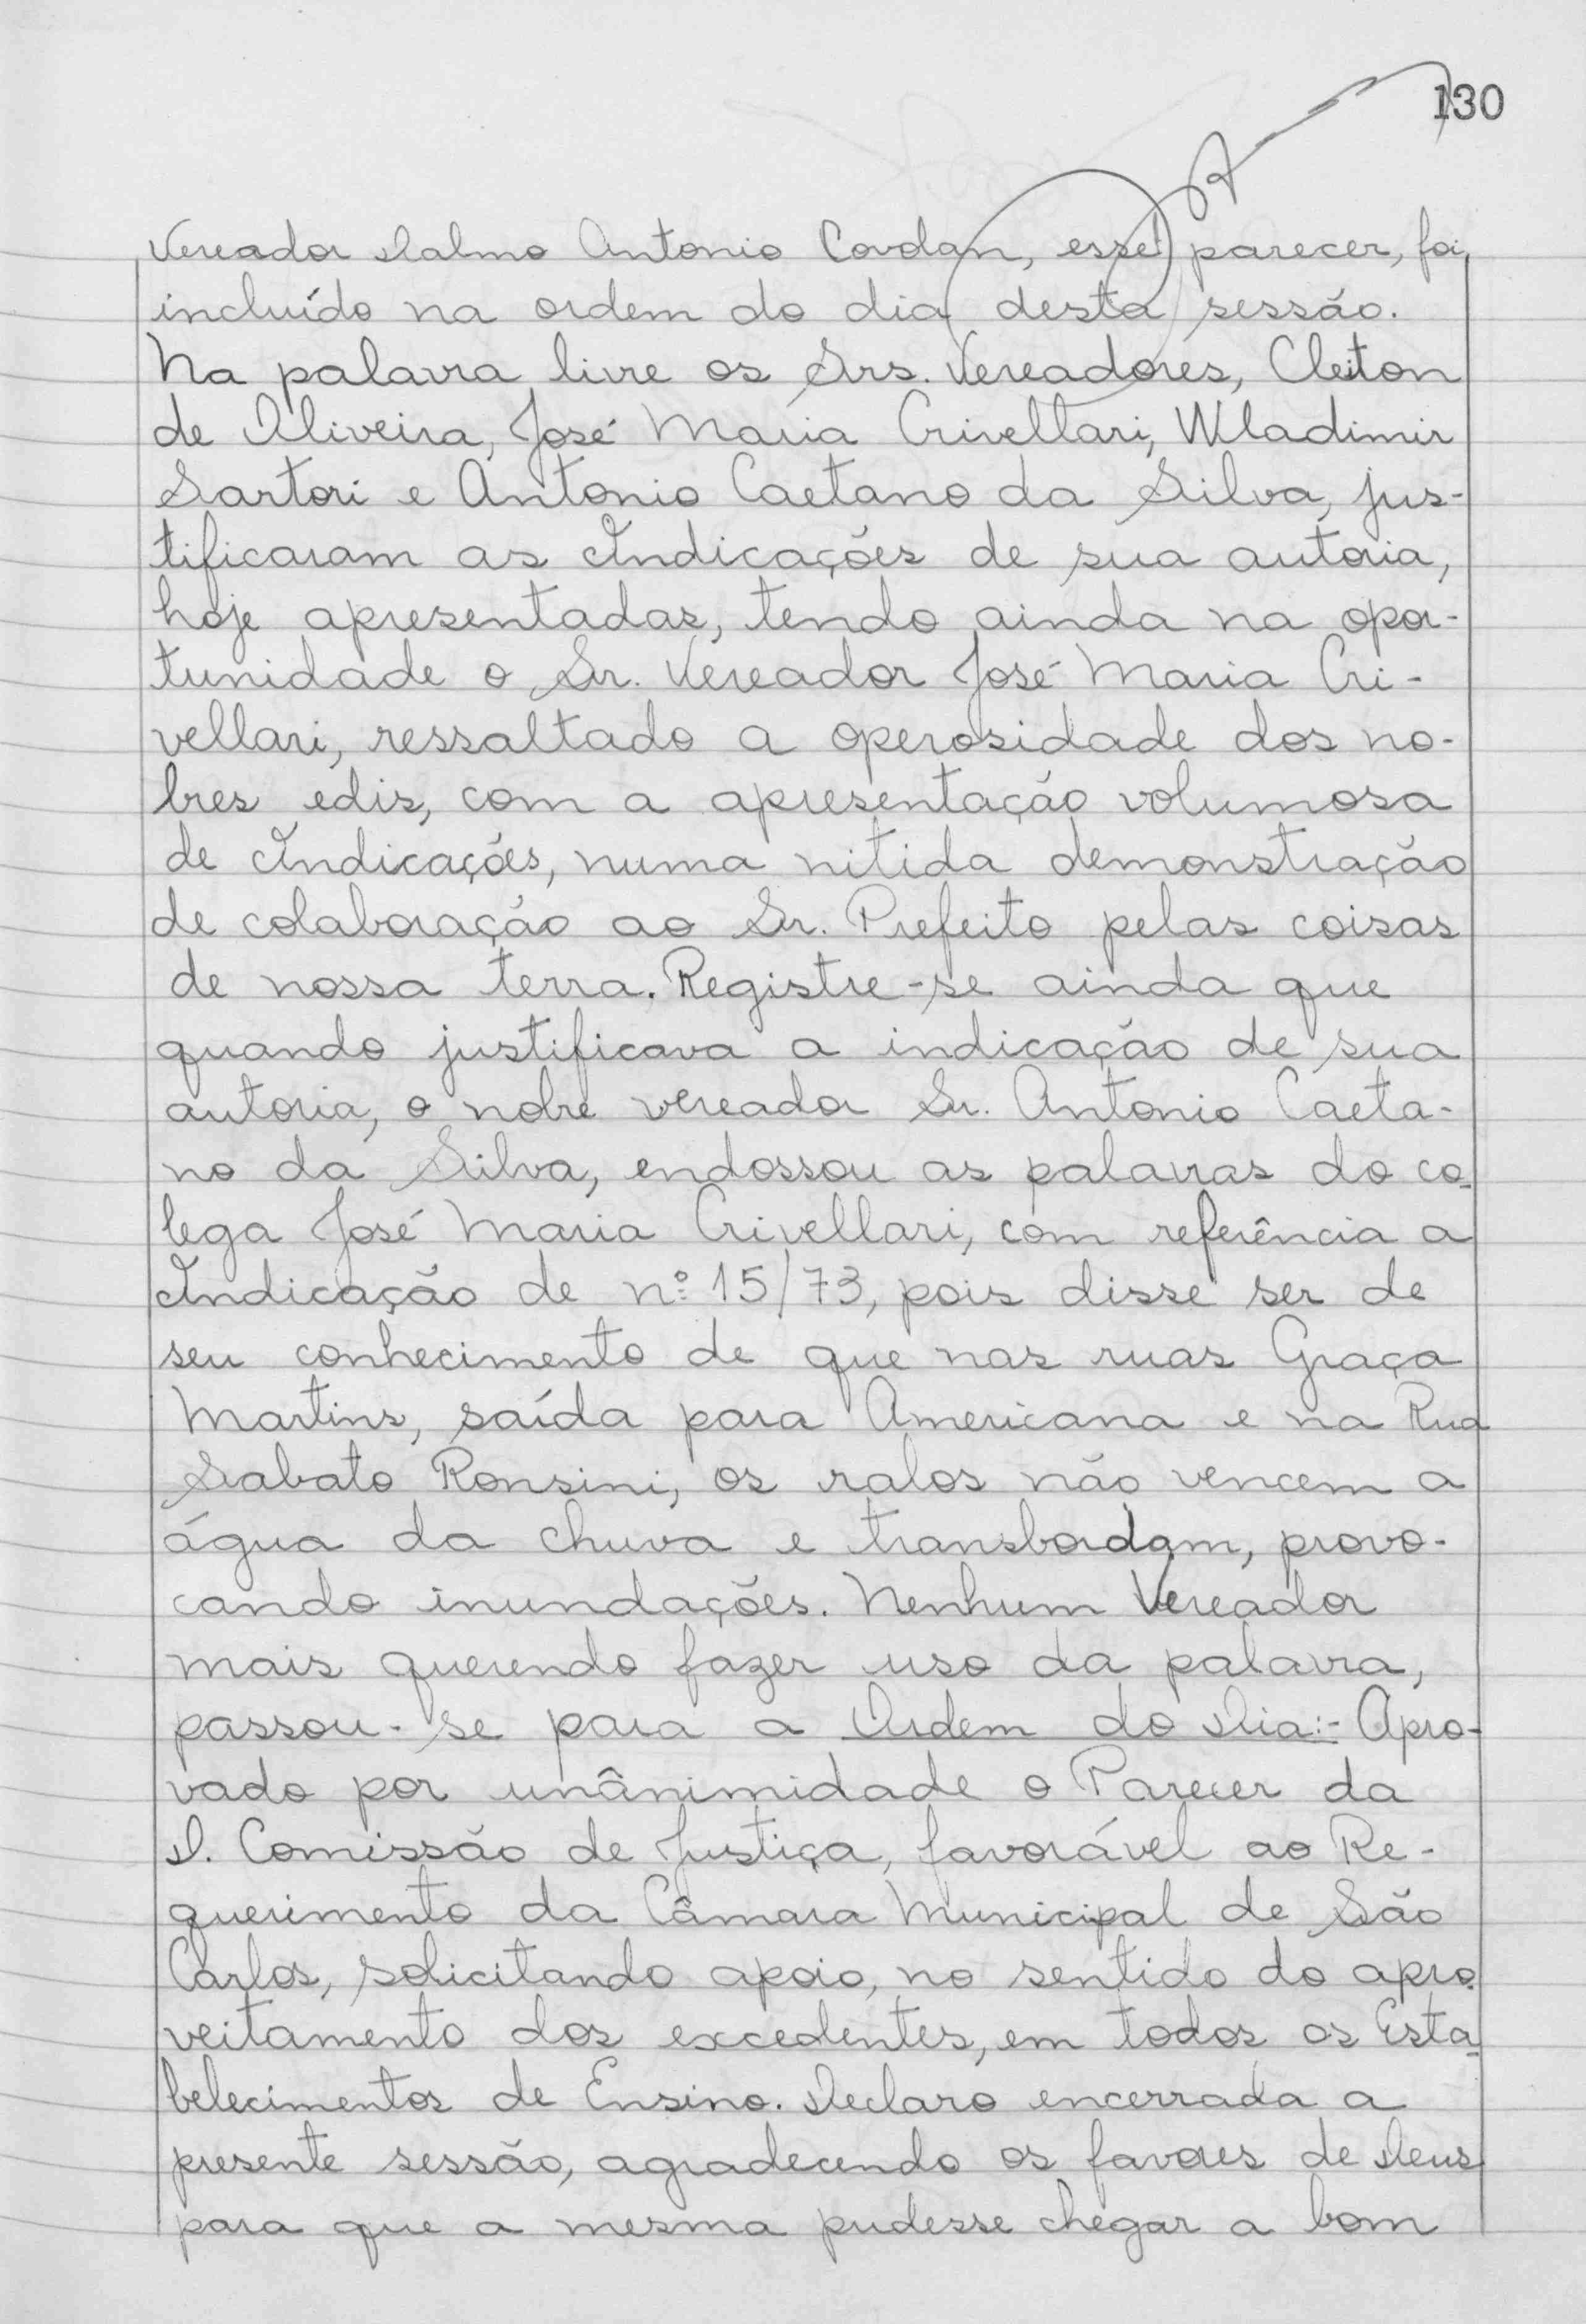 130
Vereador Dalmo Antonio Covolan, esse parecer, foi
incluído na ordem do dia desta sessão.
Na palavra livre os Srs. Vereadores, Cleiton
de Oliveira, José Maria Crivellari, Wladimir
Sartori e Antonio Caetano da Silva, jus-
tificaram as Indicações de sua autoria,
hoje apresentadas, tendo ainda na opor-
tunidade o Sr. Vereador José Maria Cri-
vellari, ressaltado a operosidade dos no-
bres edis, com a apresentação volumosa
de Indicações, numa nitida demonstração
de colaboração ao Sr. Prefeito pelas coisas
de nossa terra. Registre-se ainda que
quando justificava a indicação de sua
autoria, o nobre vereador Sr. Antonio Caeta-
no da Silva, endossou as palavras do co-
lega José Maria Crivellari, com referência a
Indicação de nº 15/73, pois disse ser de
seu conhecimento de que nas ruas Graça
Martins, saída para Americana e na Rua
Sabato Ronsini, os ralos não vencem a
água da chuva e transbordam, provo-
cando inundações. Nenhum Vereador
mais querendo fazer uso da palavra,
passou-se para a Ordem do Dia:- Apro-
vado por unânimidade o Parecer da
D. Comissão de Justiça, favorável ao Re-
querimento da Câmara Municipal de São
Carlos, solicitando apoio, no sentido do apro-
veitamento dos excedentes, em todos os Esta-
belecimentos de Ensino. Declaro encerrada a
presente sessão, agradecendo os favores de Deus
para que a mesma pudesse chegar a bom